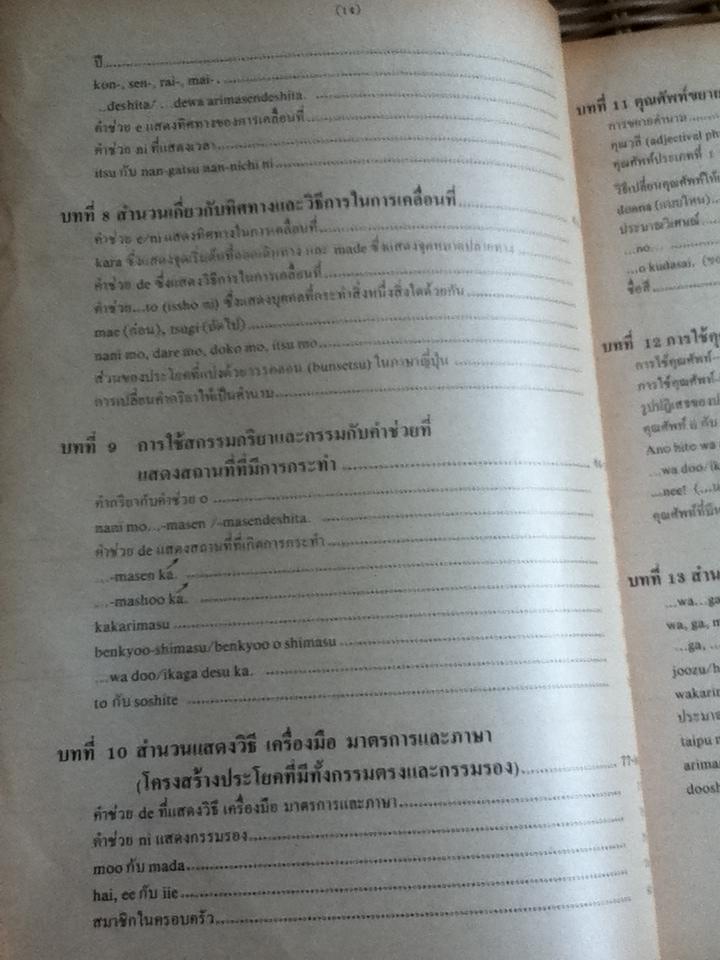 (14)
ปี
kon-, sen-, rai-, mai-
...deshita/ ...dewa arimasendeshita.
คำช่วย e แสดงทิศทางของการเคลื่อนที่
คำช่วย ni ที่แสดงเวลา
itsu กับ nan-gatsu nan-nichi ni
บทที่ 8 สำนวนเกี่ยวกับทิศทางและวิธีการในการเคลื่อนที่
คำช่วย e/ni แสดงทิศทางในการเคลื่อนที่
kara ซึ่งแสดงจุดเริ่มต้นที่ออกเดินทาง และ made ซึ่งแสดงจุดหมายปลายทาง
คำช่วย de ซึ่งแสดงวิธีการในการเคลื่อนที่
คำช่วย...to (issho ni) ซึ่งแสดงบุคคลที่กระทำสิ่งหนึ่งสิ่งใดด้วยกัน
mae (ก่อน), tsugi (ถัดไป)
nani mo, dare mo, doko mo, itsu mo
ส่วนของประโยคที่แบ่งด้วยวรรคตอน (bunsetsu) ในภาษาญี่ปุ่น
การเปลี่ยนคำกริยาให้เป็นคำนาม
บทที่ 9 การใช้สกรรมกริยาและกรรมกับคำช่วยที่
แสดงสถานที่ที่มีการกระทำ
คำกริยากับคำช่วย o
nani mo...-masen /-masendeshita.
คำช่วย de แสดงสถานที่ที่เกิดการกระทำ
...-masen ka.
...-mashoo ka.
kakarimasu
benkyoo-shimasu/benkyoo o shimasu
...wa doo/ikaga desu ka.
to กับ soshite
บทที่ 10 สำนวนแสดงวิธี เครื่องมือ มาตรการและภาษา
(โครงสร้างประโยคที่มีทั้งกรรมตรงและกรรมรอง) 77
คำช่วย de ที่แสดงวิธี เครื่องมือ มาตรการและภาษา
คำช่วย ni แสดงกรรมรอง
moo กับ mada
hai, ee กับ iie
สมาชิกในครอบครัว
บทที่ 11 คุณศัพท์ขยาย
การขยายคำนาม
คุณวลี (adjectival ph
คุณศัพท์ประเภทที่ 1
วิธีเปลี่ยนคุณศัพท์ให้
donna (แบบไหน)
ประมาณวิเศษณ์
...no...
...o kudasai.
ชื่อสี
บทที่ 12 การใช้คุ
การใช้คุณศัพท์
การใช้คุณศัพท์
รูปปฏิเสธของ
คุณศัพท์ ii กับ
Ano hito wa
...wa doo/i
...nee!
คุณศัพท์ที่
บทที่ 13 สำน
...wa...ga
wa, ga, m
...ga, ...
joozu/h
wakari
ประมาณ
taipu
arima
doosh